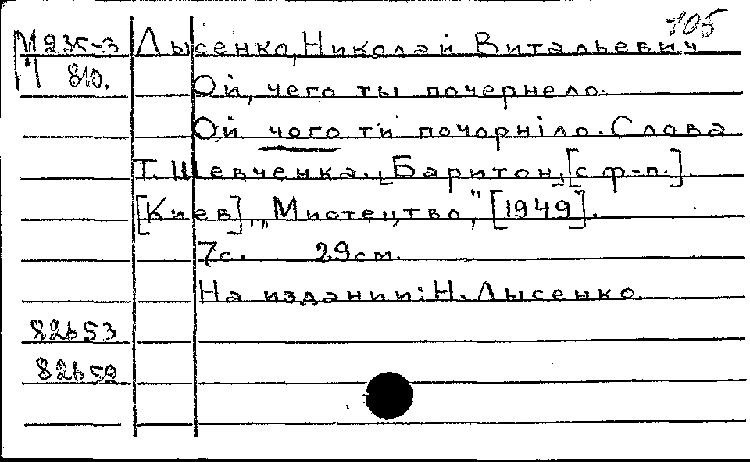 105
М 235-3 Лысенко, Николай Витальевич
М 810.
Ой, чего ты почернело.
Ой чого ти почорніло. Слова
Т. Шевченка. [Баритон, [с ф-п.]
[Киев], „Мистецтво," [1949].
7с. 29см.
На издании: Н. Лысенко
82653
82652